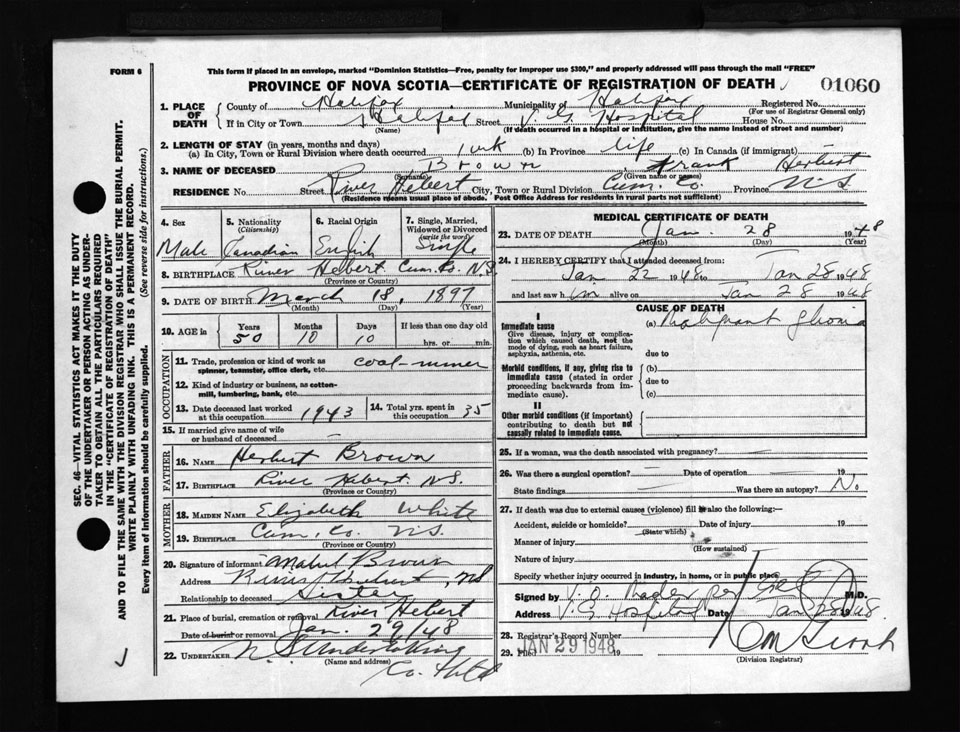 FORM 6
This form if placed in an envelope, marked "Dominion Statistics—Free, penalty for improper use $300," and properly addressed will pass through the mail "FREE"
PROVINCE OF NOVA SCOTIA—CERTIFICATE OF REGISTRATION OF DEATH 01060
1. PLACE OF DEATH
County of Halifax Municipality of Halifax Registered No.
(For use of Registrar General only)
If in City or Town Halifax Street V. G. Hospital House No.
(Name) (If death occurred in a hospital or institution, give the name instead of street and number)
2. LENGTH OF STAY (in years, months and days)
(a) In City, Town or Rural Division where death occurred 1 wk (b) In Province life (c) In Canada (if immigrant)
3. NAME OF DECEASED Brown Frank Herbert
(Surname) (Given name or names)
RESIDENCE No. Street River Hebert City, Town or Rural Division Cum. Co. Province N.S.
(Residence means usual place of abode. Post Office Address for residents in rural parts not sufficient)
4. Sex Male
5. Nationality (Citizenship) Canadian
6. Racial Origin English
7. Single, Married, Widowed or Divorced (write the word) Single
8. BIRTHPLACE River Hebert Cum. Co. N.S.
(Province or Country)
9. DATE OF BIRTH March 18, 1897
(Month) (Day) (Year)
10. AGE in Years 50 Months 10 Days 10 If less than one day old hrs. or min.
OCCUPATION
11. Trade, profession or kind of work as spinner, teamster, office clerk, etc. coal-miner
12. Kind of industry or business, as cotton-mill, lumbering, bank, etc.
13. Date deceased last worked at this occupation 1943
14. Total yrs. spent in this occupation 35
15. If married give name of wife or husband of deceased –
FATHER
16. NAME Herbert Brown
17. BIRTHPLACE River Hebert. N.S.
(Province or Country)
MOTHER
18. MAIDEN NAME Elizabeth White
19. BIRTHPLACE Cum. Co. N.S.
(Province or Country)
20. Signature of informant Mabel Brown
Address River Hebert, NS
Relationship to deceased Sister
21. Place of burial, cremation or removal River Hebert
Date of burial or removal Jan. 29/48
22. UNDERTAKER N. S. Undertaking
(Name and address)
Co.
MEDICAL CERTIFICATE OF DEATH
23. DATE OF DEATH Jan. 28 1948
(Month) (Day) (Year)
24. I HEREBY CERTIFY that I attended deceased from:
Jan 22 1948 to Jan 28 1948
and last saw him alive on Jan 28 1948
CAUSE OF DEATH
I
Immediate cause
Give disease, injury or complication which caused death, not the mode of dying, such as heart failure, asphyxia, asthenia, etc.
(a) Malignant glioma
due to
Morbid conditions, if any, giving rise to immediate cause (stated in order proceeding backwards from immediate cause).
(b)
due to
(c)
II
Other morbid conditions (if important) contributing to death but not causally related to immediate cause.
25. If a woman, was the death associated with pregnancy?
26. Was there a surgical operation? Date of operation 19
State findings Was there an autopsy? No
27. If death was due to external causes (violence) fill in also the following:—
Accident, suicide or homicide? Date of injury 19
(State which)
Manner of injury
(How sustained)
Nature of injury
Specify whether injury occurred in industry, in home, or in public place
Signed by M.D.
Address V. G. Hospital Date Jan 28 1948
28. Registrar's Record Number
29. Filed JAN 29 1948 19
(Division Registrar)
SEC. 46—VITAL STATISTICS ACT MAKES IT THE DUTY
OF THE UNDERTAKER OR PERSON ACTING AS UNDER-
TAKER TO OBTAIN ALL THE PARTICULARS REQUIRED
IN THE "CERTIFICATE OF REGISTRATION OF DEATH"
AND TO FILE THE SAME WITH THE DIVISION REGISTRAR WHO SHALL ISSUE THE BURIAL PERMIT.
WRITE PLAINLY WITH UNFADING INK. THIS IS A PERMANENT RECORD.
Every item of information should be carefully supplied. (See reverse side for instructions.)